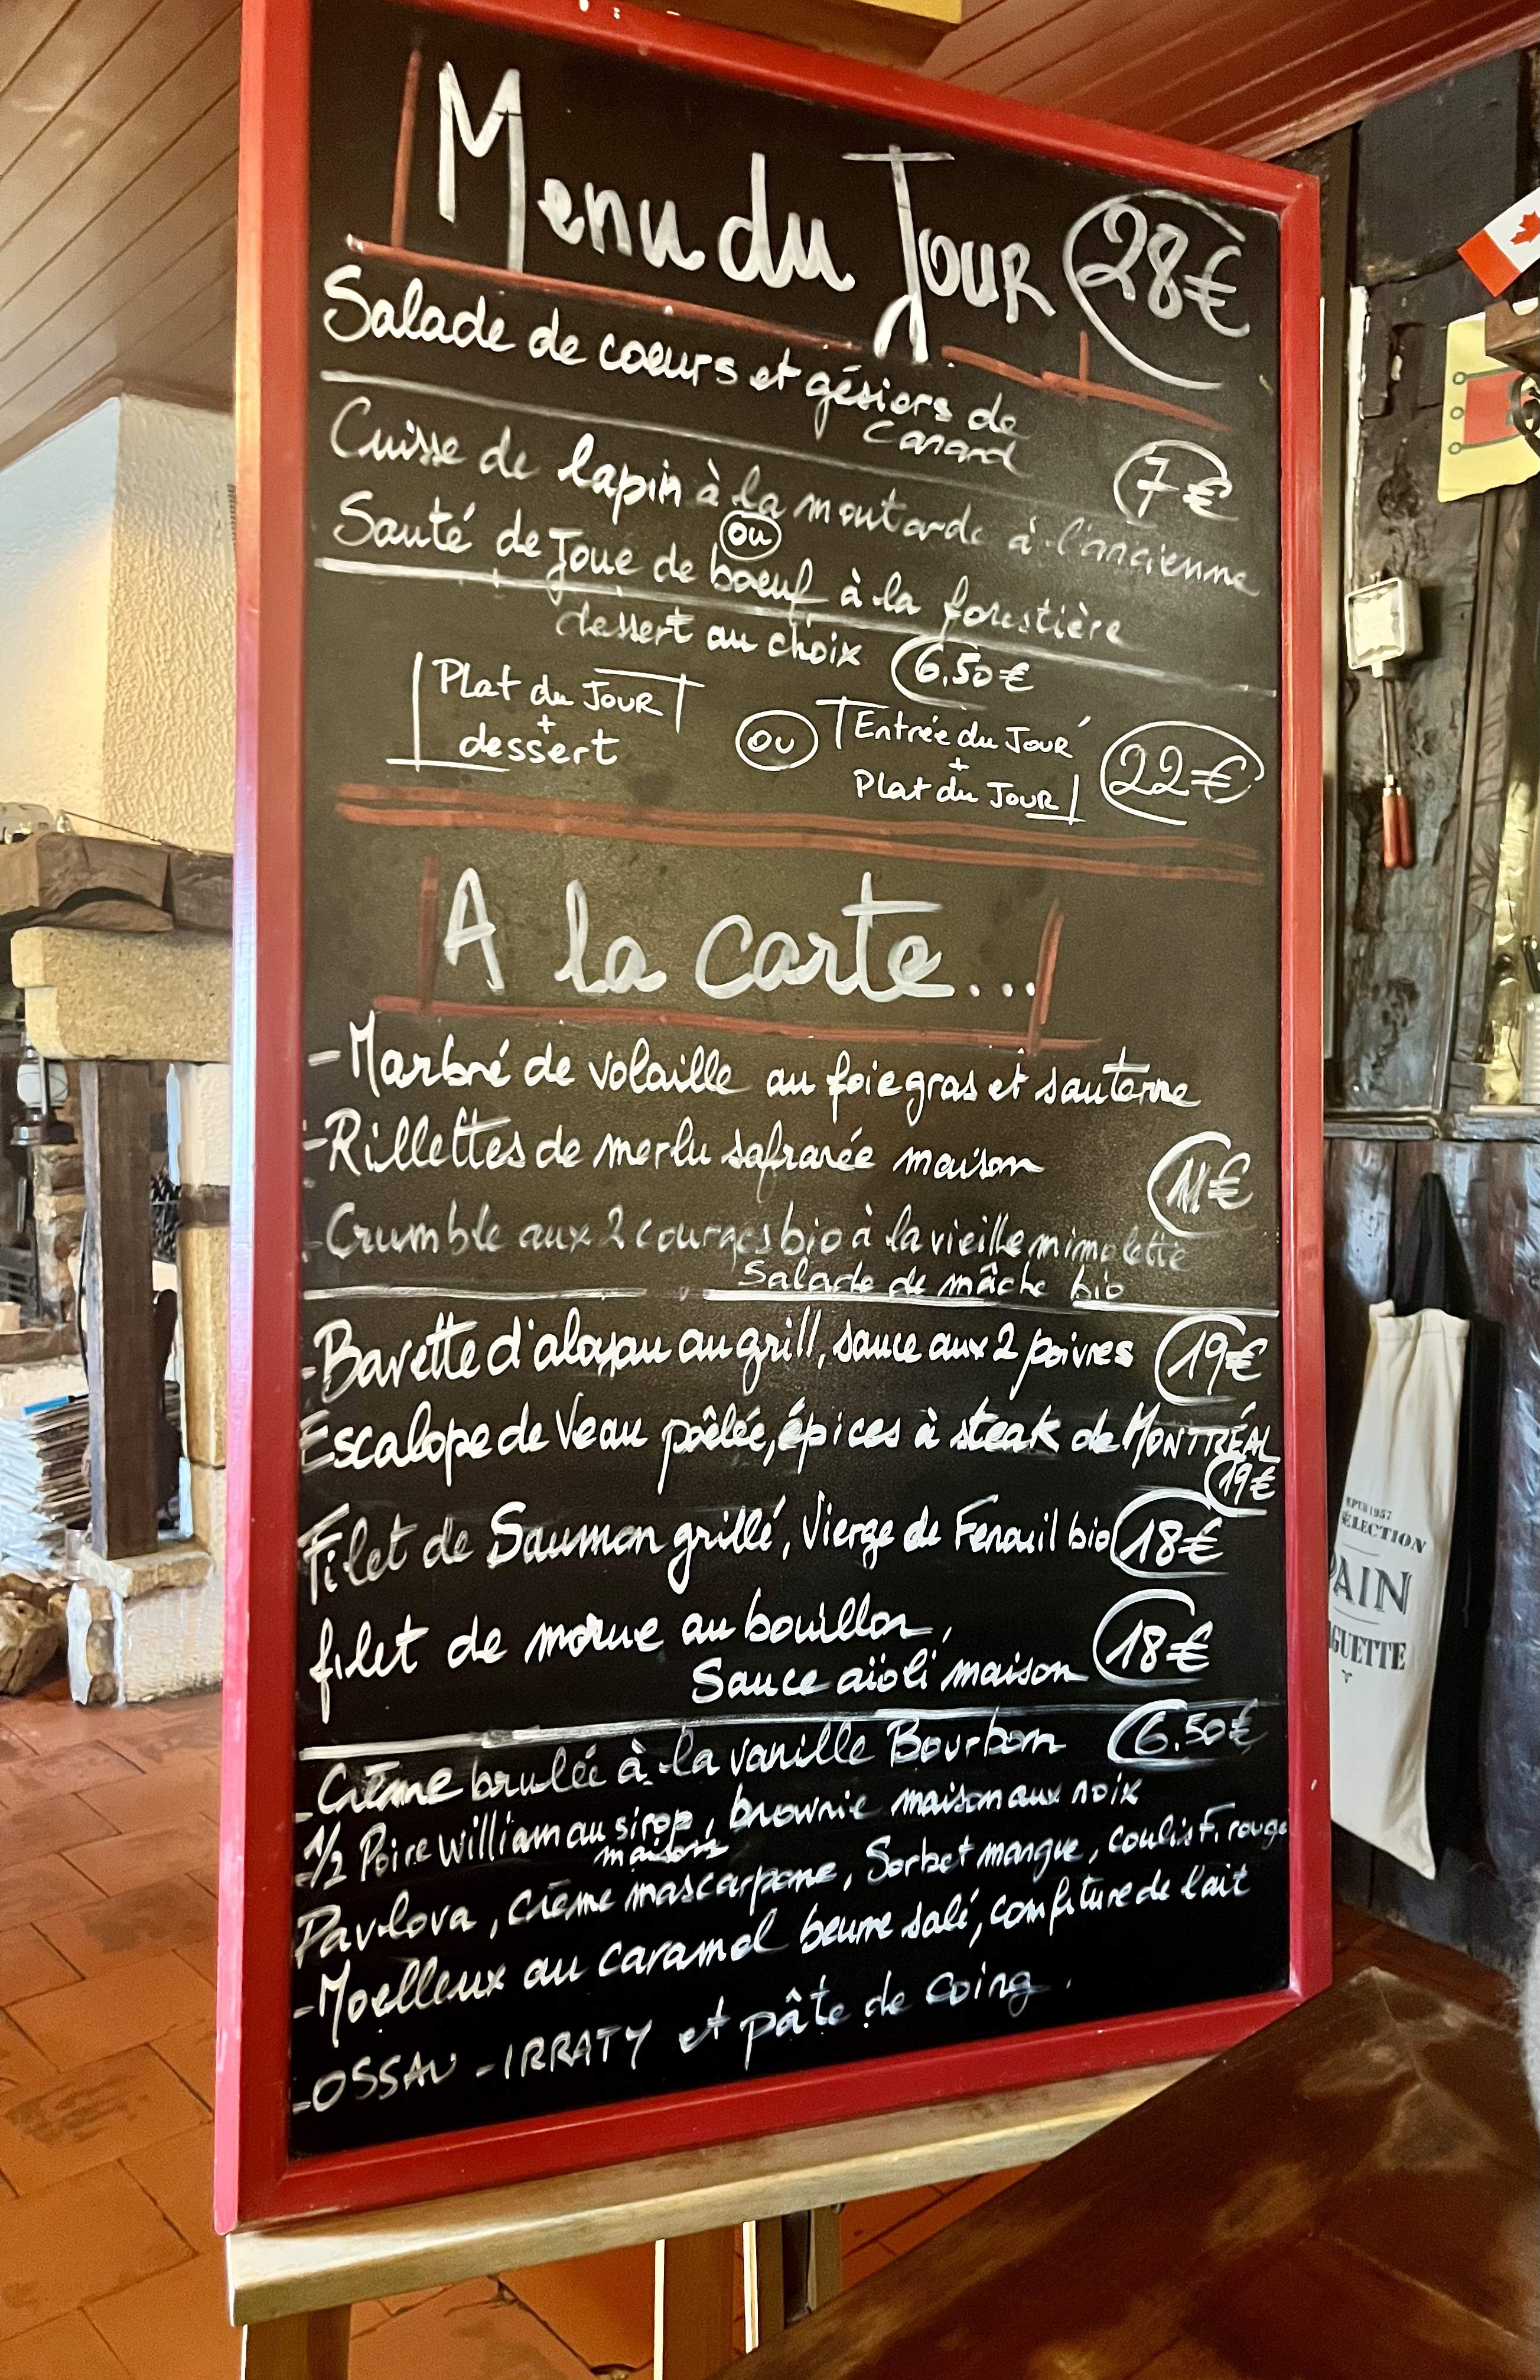 Menu du Jour 28€
Salade de coeurs et gésiers de
canard
7€
Cuisse de lapin à la moutarde à l'ancienne
ou
Sauté de Joue de boeuf à la forestière
dessert au choix 6.50€
Plat du Jour
+
dessert
ou
Entrée du Jour
+
Plat du Jour
22€
A la carte...
- Marbré de volaille au foie gras et sauterne
- Rillettes de merlu safranée maison
11€
- Crumble aux 2 courges bio à la vieille mimolette
Salade de mâche bio
- Bavette d'aloyau au grill, sauce aux 2 poivres 19€
Escalope de Veau poêlée, épices à steak de MONTRÉAL
19€
Filet de Saumon grillé, Vierge de Fenouil bio 18€
filet de morue au bouillon,
Sauce aïoli maison 18€
- Crème brulée à la vanille Bourbon 6.50€
- 1/2 Poire William au sirop, brownie maison aux noix
maison
Pavlova, crème mascarpone, Sorbet mangue, coulis F. rouge
- Moelleux au caramel beurre salé, confiture de lait
- OSSAU - IRRATY et pâte de coing.
DEPUIS 1957
SÉLECTION
PAIN
AGUETTE